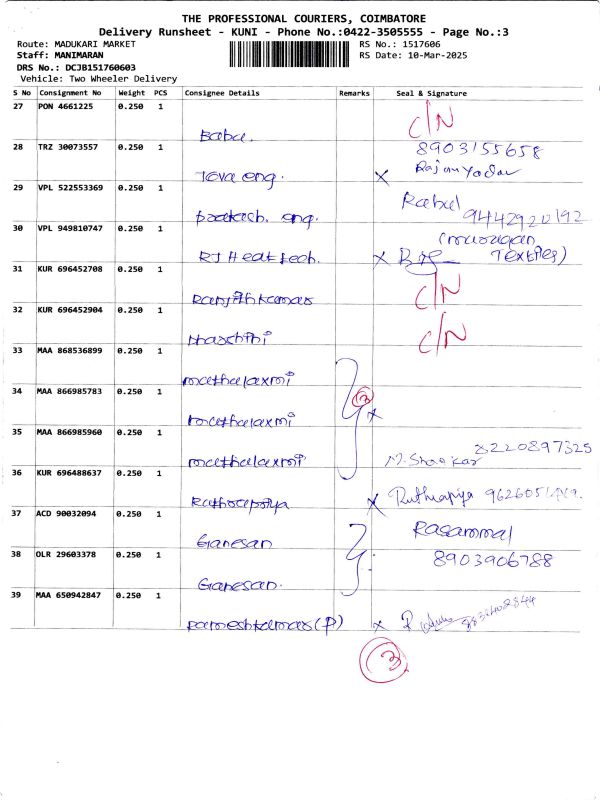 THE PROFESSIONAL COURIERS, COIMBATORE
Delivery Runsheet - KUNI - Phone No.:0422-3505555 - Page No.:3
Route: MADUKARI MARKET RS No.: 1517606
Staff: MANIMARAN RS Date: 10-Mar-2025
DRS No.: DCJB151760603
Vehicle: Two Wheeler Delivery
S No Consignment No Weight PCS Consignee Details Remarks Seal & Signature
27 PON 4661225 0.250 1
Babu. C/N
28 TRZ 30073557 0.250 1 8903155658
Teva eng. X Rajan Yadav
29 VPL 522553369 0.250 1 Rahul
prakash. eng. 9442920192
30 VPL 949810747 0.250 1 (murugan
RJ Heat tech. X Textiles)
31 KUR 696452708 0.250 1
Ranjithkumar C/N
32 KUR 696452904 0.250 1
C/N
33 MAA 868536899 0.250 1
mathulaxmi
34 MAA 866985783 0.250 1 3
mathulaxmi X
35 MAA 866985960 0.250 1 8220897325
mathulaxmi M. Shankar
36 KUR 696488637 0.250 1
X Ruthrapriya
37 ACD 90032094 0.250 1 Rasammal
Ganesan
38 OLR 29603378 0.250 1 8903906788
Ganesan.
39 MAA 650942847 0.250 1
Rameshkumar (P) X
3